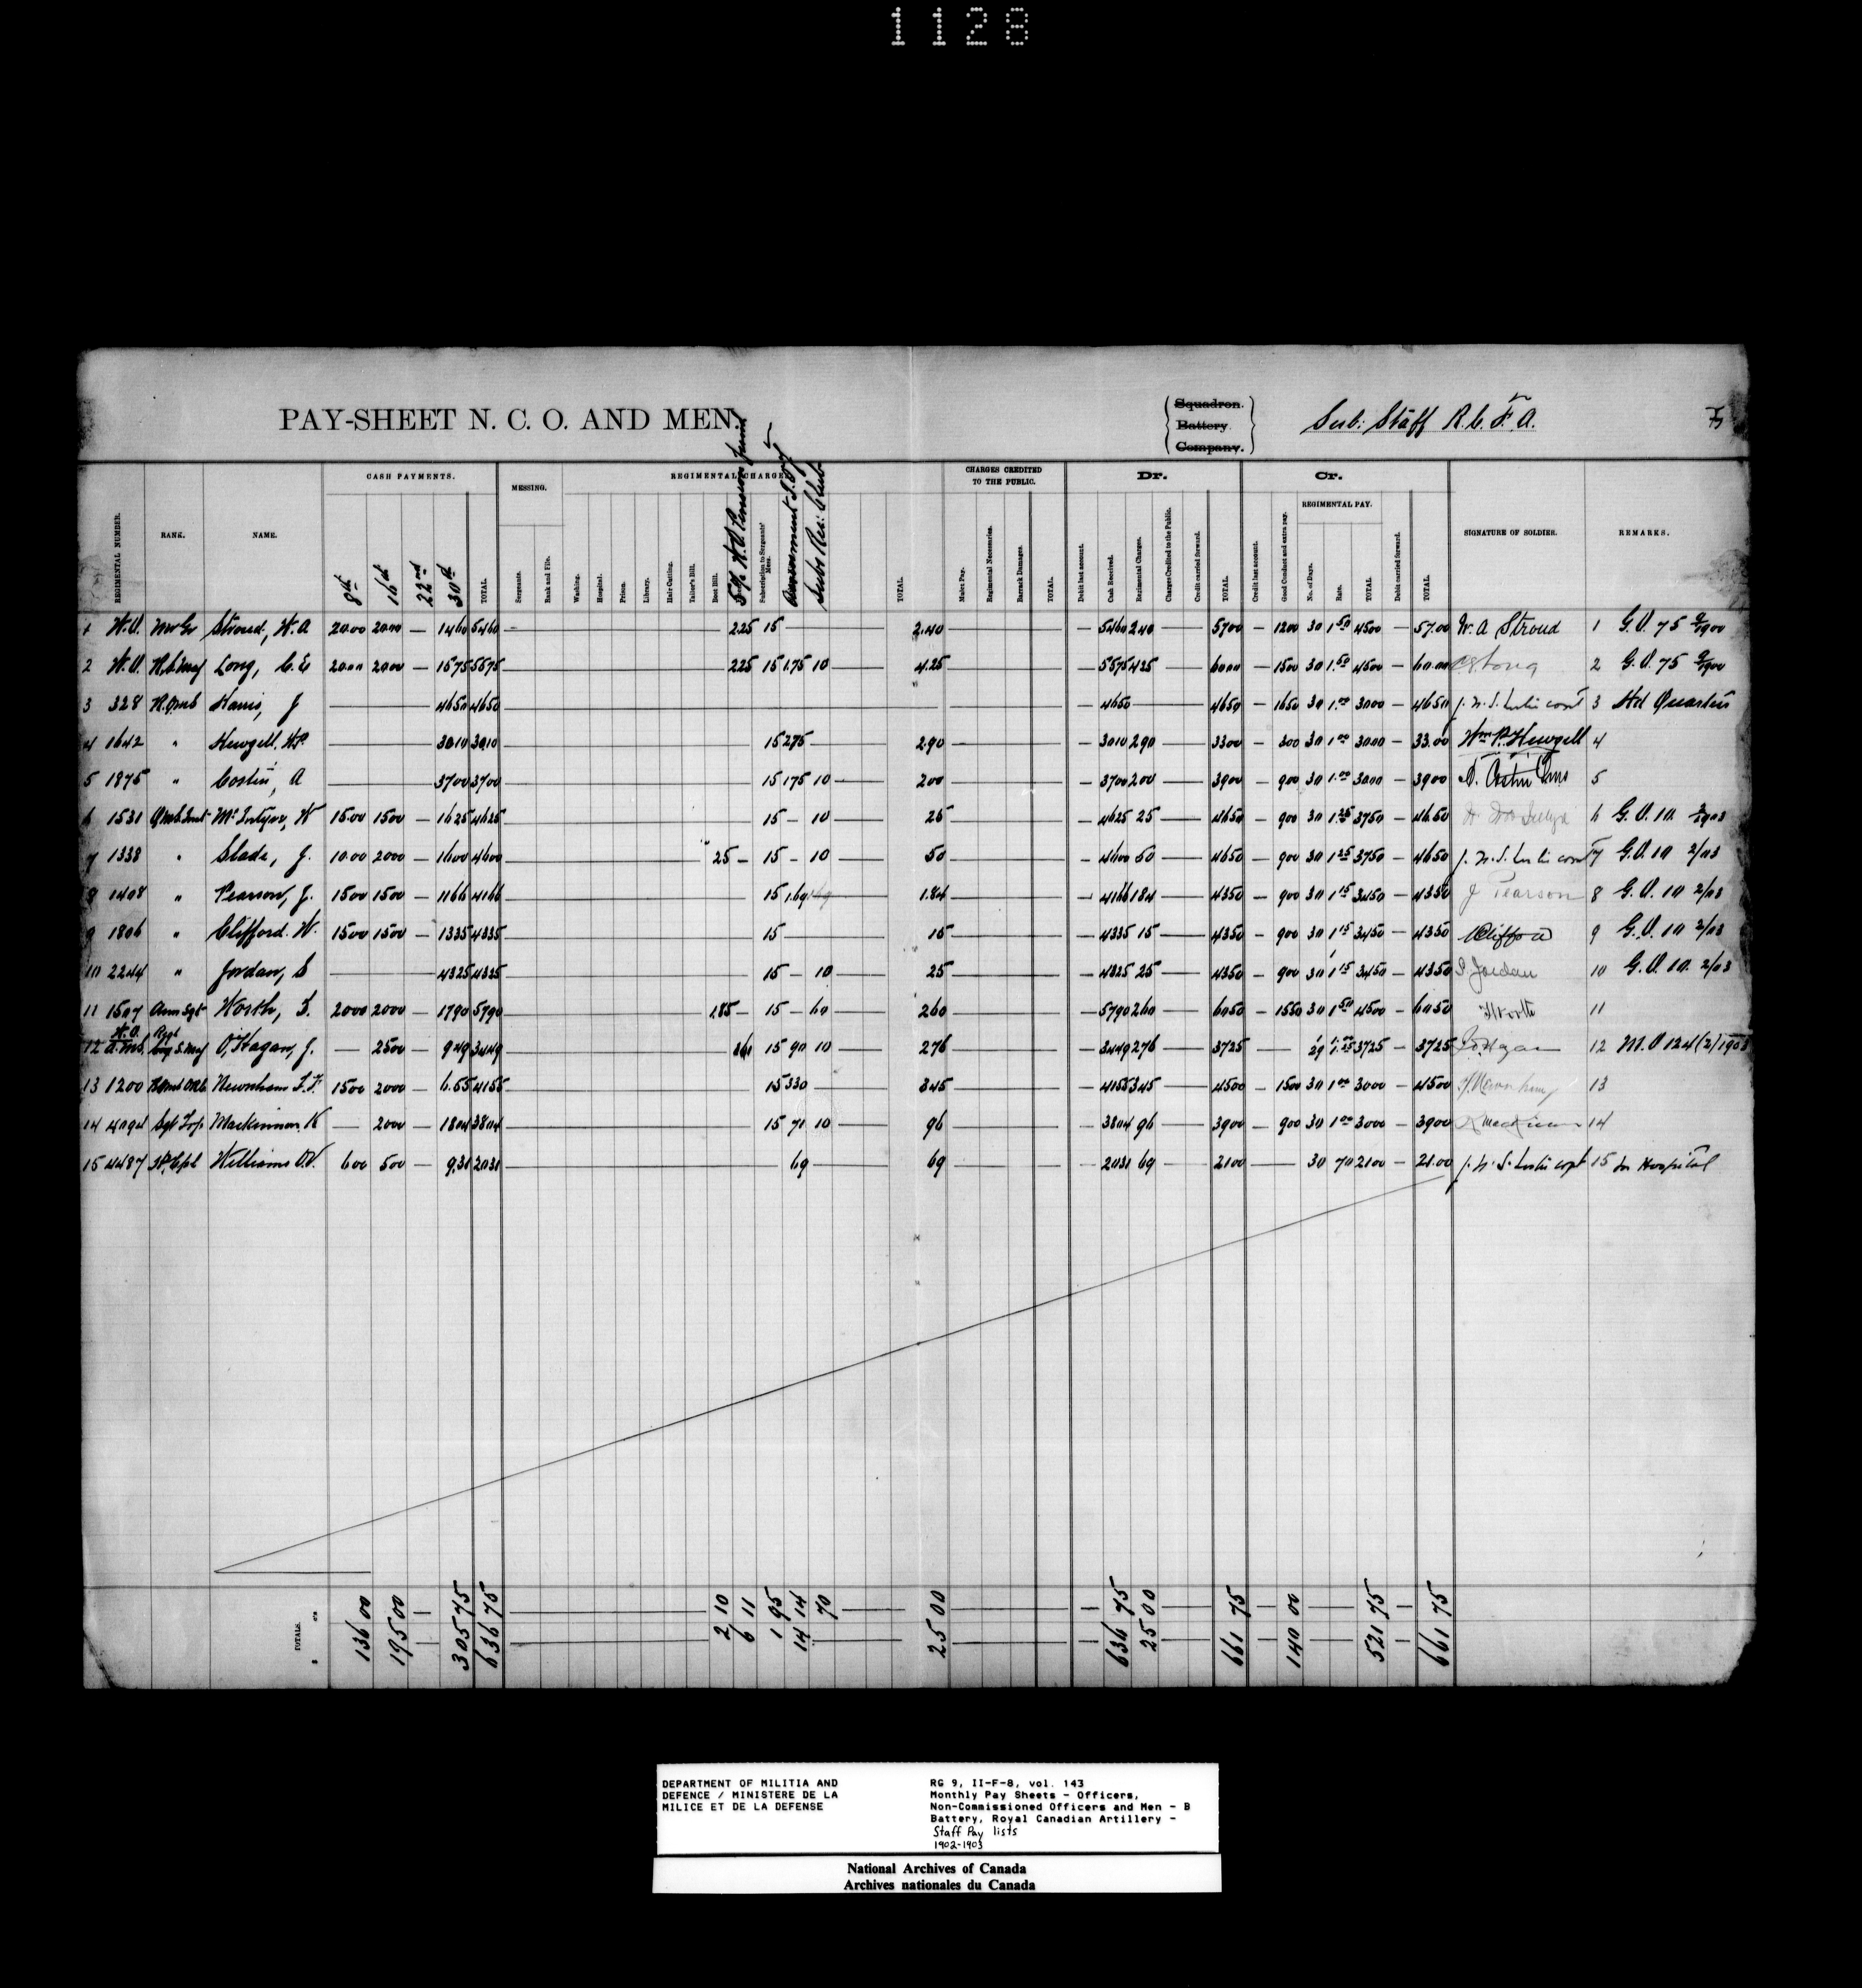 1128
PAY-SHEET N. C. O. AND MEN.
Squadron.
Battery
Company.
Sub: Staff R.C.F.A.
CASH PAYMENTS.
MESSING.
REGIMENTAL CHARGES
CHARGES CREDITED TO THE PUBLIC.
Dr.
Cr.
REGIMENTAL PAY.
REGIMENTAL NUMBER. RANK. NAME. 8th 16th 22nd 30th TOTAL. Sergeants. Rank and File. Washing. Hospital. Prison. Library. Hair Cutting. Tailor's Bill. Boot Bill. 5% W.O. Pension Fund Subscription to Sergeants' Mess. Subs Rec: Club TOTAL. Maint Pay. Regimental Necessaries. Barrack Damages. TOTAL. Debit last account. Cash Received. Regimental Charges. Charges Credited to the Public. Credit carried forward. TOTAL. Credit last account. Good Conduct and extra pay. No. of Days. Rate. TOTAL. Debit carried forward. TOTAL. SIGNATURE OF SOLDIER. REMARKS.
1 W.O. Mr Gr Stroud, W.A 2000 2000 — 1460 5460 — 225 15 — 2.40 — 5460 240 — 5700 — 1200 30 1.50 4500 — 57.00 W. A Stroud 1 G.O. 75 9/1900
2 W.O. Long, C.E 2000 2000 — 1575 5575 — 225 15 1.75 10 — 4.25 — 5575 425 — 6000 — 1500 30 1.50 4500 — 60.00 C E Long 2 G.O. 75 9/1900
3 328 Harris, J — 4650 4650 — 4650 — 4650 — 1650 30 1.00 3000 — 4650 3 Hd Quarters
4 1642 " Hewgell, W.P. — 3010 3010 — 15 275 — 290 — 3010 290 — 3300 — 300 30 1.00 3000 — 33.00 Wm P. Hewgell 4
5 1875 " Costin, A — 3700 3700 — 15 175 10 — 200 — 3700 200 — 3900 — 900 30 1.00 3000 — 3900 5
6 1531 McIntyre, W 1500 1500 — 1625 4625 — 15 — 10 — 25 — 4625 25 — 4650 — 900 30 1.25 3750 — 4650 6 G.O. 10 2/1903
7 1338 " Slade, J. 1000 2000 — 1600 4600 — 25 — 15 — 10 — 50 — 4600 50 — 4650 — 900 30 1.25 3750 — 4650 7 G.O. 10 2/03
8 1408 " Pearson, J. 1500 1500 — 1166 4166 — 15 1.69 — 1.84 — 4166 184 — 4350 — 900 30 1.15 3450 — 4350 J Pearson 8 G.O. 10 2/03
9 1806 " Clifford. W. 1500 1500 — 1335 4335 — 15 — 15 — 4335 15 — 4350 — 900 30 1.15 3450 — 4350 WClifford 9 G.O. 10 2/03
10 2244 " Jordan, S — 4325 4325 — 15 — 10 — 25 — 4325 25 — 4350 — 900 30 1.15 3450 — 4350 S. Jordan 10 G.O. 10. 2/03
11 1507 Arm Sgt Worth, F. 2000 2000 — 1790 5790 — 1.85 — 15 — 60 — 260 — 5790 260 — 6050 — 1550 30 1.50 4500 — 6050 FWorth 11
12 W.O. S. Maj O'Hagan, J. — 2500 — 949 3449 — 161 15 90 10 — 276 — 3449 276 — 3725 — 29 3725 — 3725 12 M.O 124(2) 1903
13 1200 Newnham F.F. 1500 2000 — 6.55 4155 — 15 330 — 345 — 4155 345 — 4500 — 1500 30 1.00 3000 — 4500 13
14 4094 Sgt Trp Mackinnon. K — 2000 — 1804 3804 — 15 71 10 — 96 — 3804 96 — 3900 — 900 30 1.00 3000 — 3900 14
15 4487 Williams O.V. 600 500 — 9.31 2031 — 69 — 69 — 2031 69 — 2100 — 30 70 2100 — 21.00 15 In Hospital
TOTALS. 136 00 195 00 — 305 75 636 75 — 2 10 6 11 1 95 14 14 70 — 25 00 — 636 75 25 00 — 661 75 — 140 00 — 521 75 — 661 75
DEPARTMENT OF MILITIA AND
DEFENCE / MINISTERE DE LA
MILICE ET DE LA DEFENSE
RG 9, II-F-8, vol. 143
Monthly Pay Sheets - Officers,
Non-Commissioned Officers and Men - B
Battery, Royal Canadian Artillery -
Staff Pay lists
1902-1903
National Archives of Canada
Archives nationales du Canada